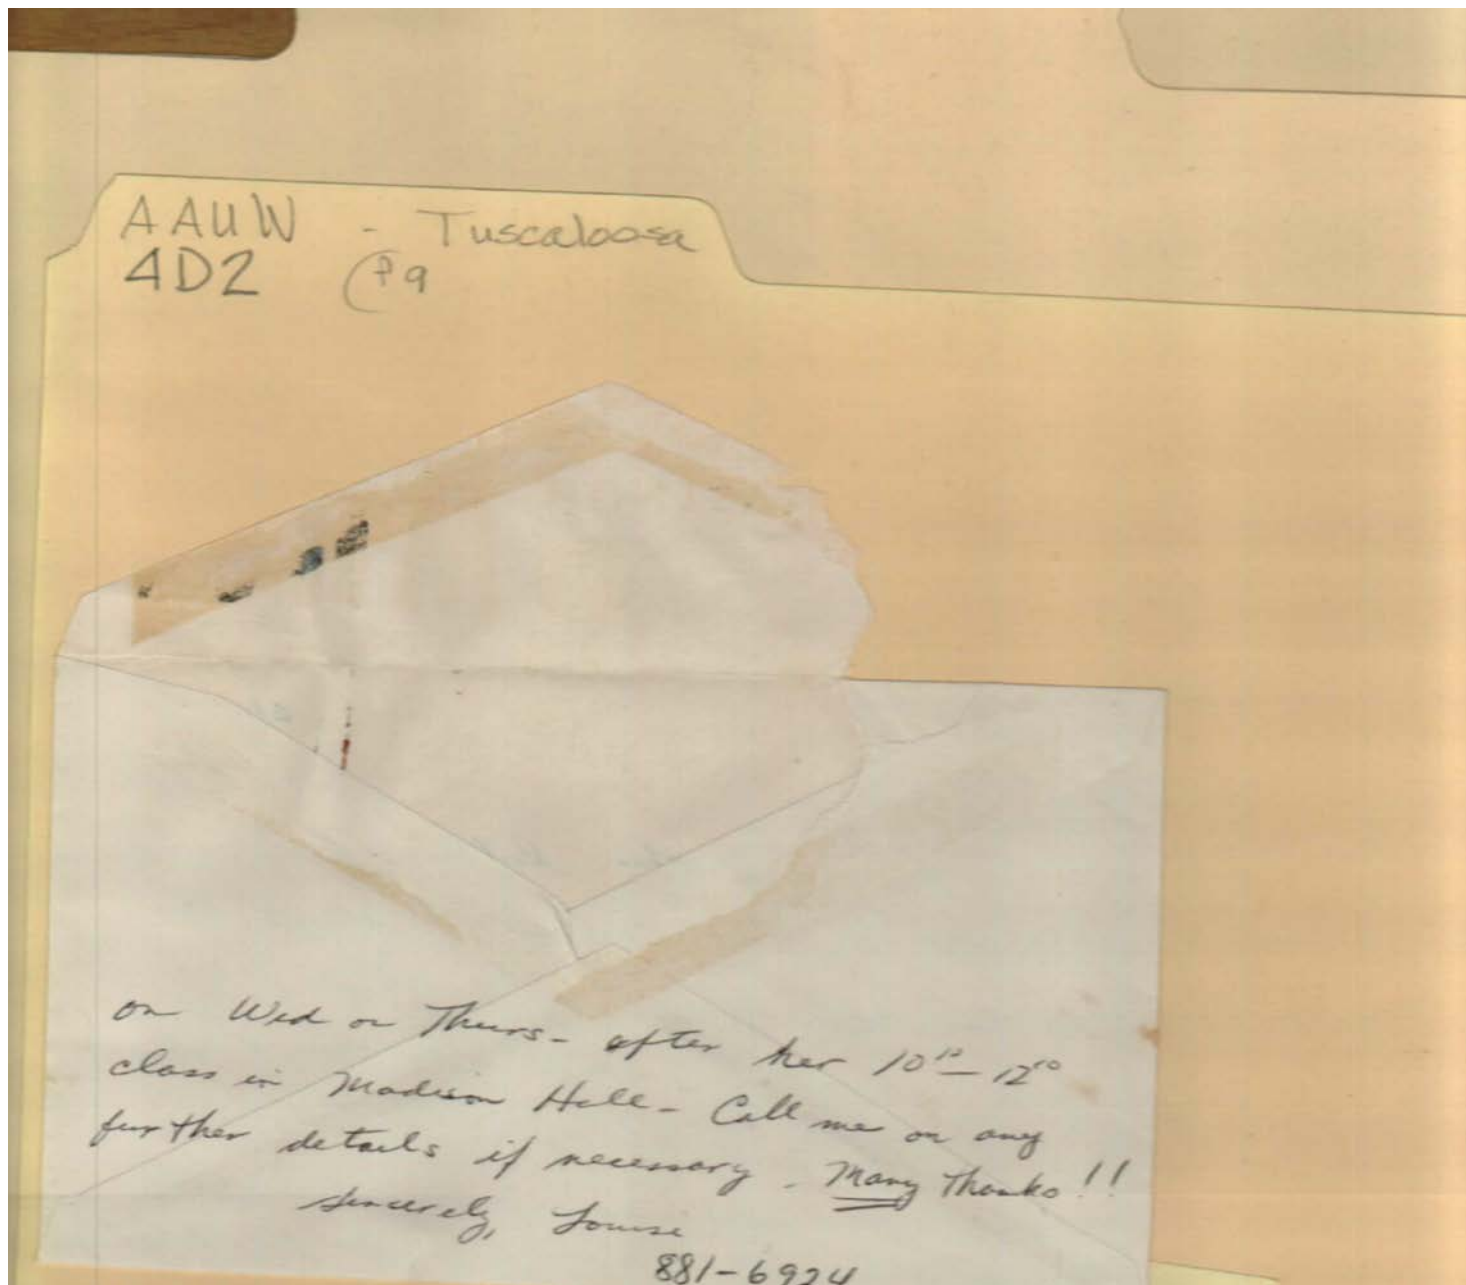 AAUW - Tuscaloosa
4D2 (P9
on Wed or Thurs - after her 10¹⁰ - 12¹⁰
class in Madison Hall - Call me on any
further details if necessary - Many Thanks!!
Sincerely, Louise
881-6924